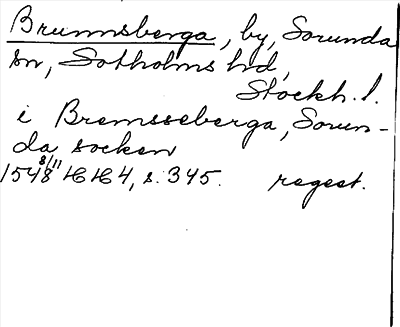 Brunnsberga, by, Sorunda
sn, Sotholms hd,
Stockh. l.
i Bremsseberga, Sorun-
da socken
1548 8/11 HH 4, s. 345. regest.